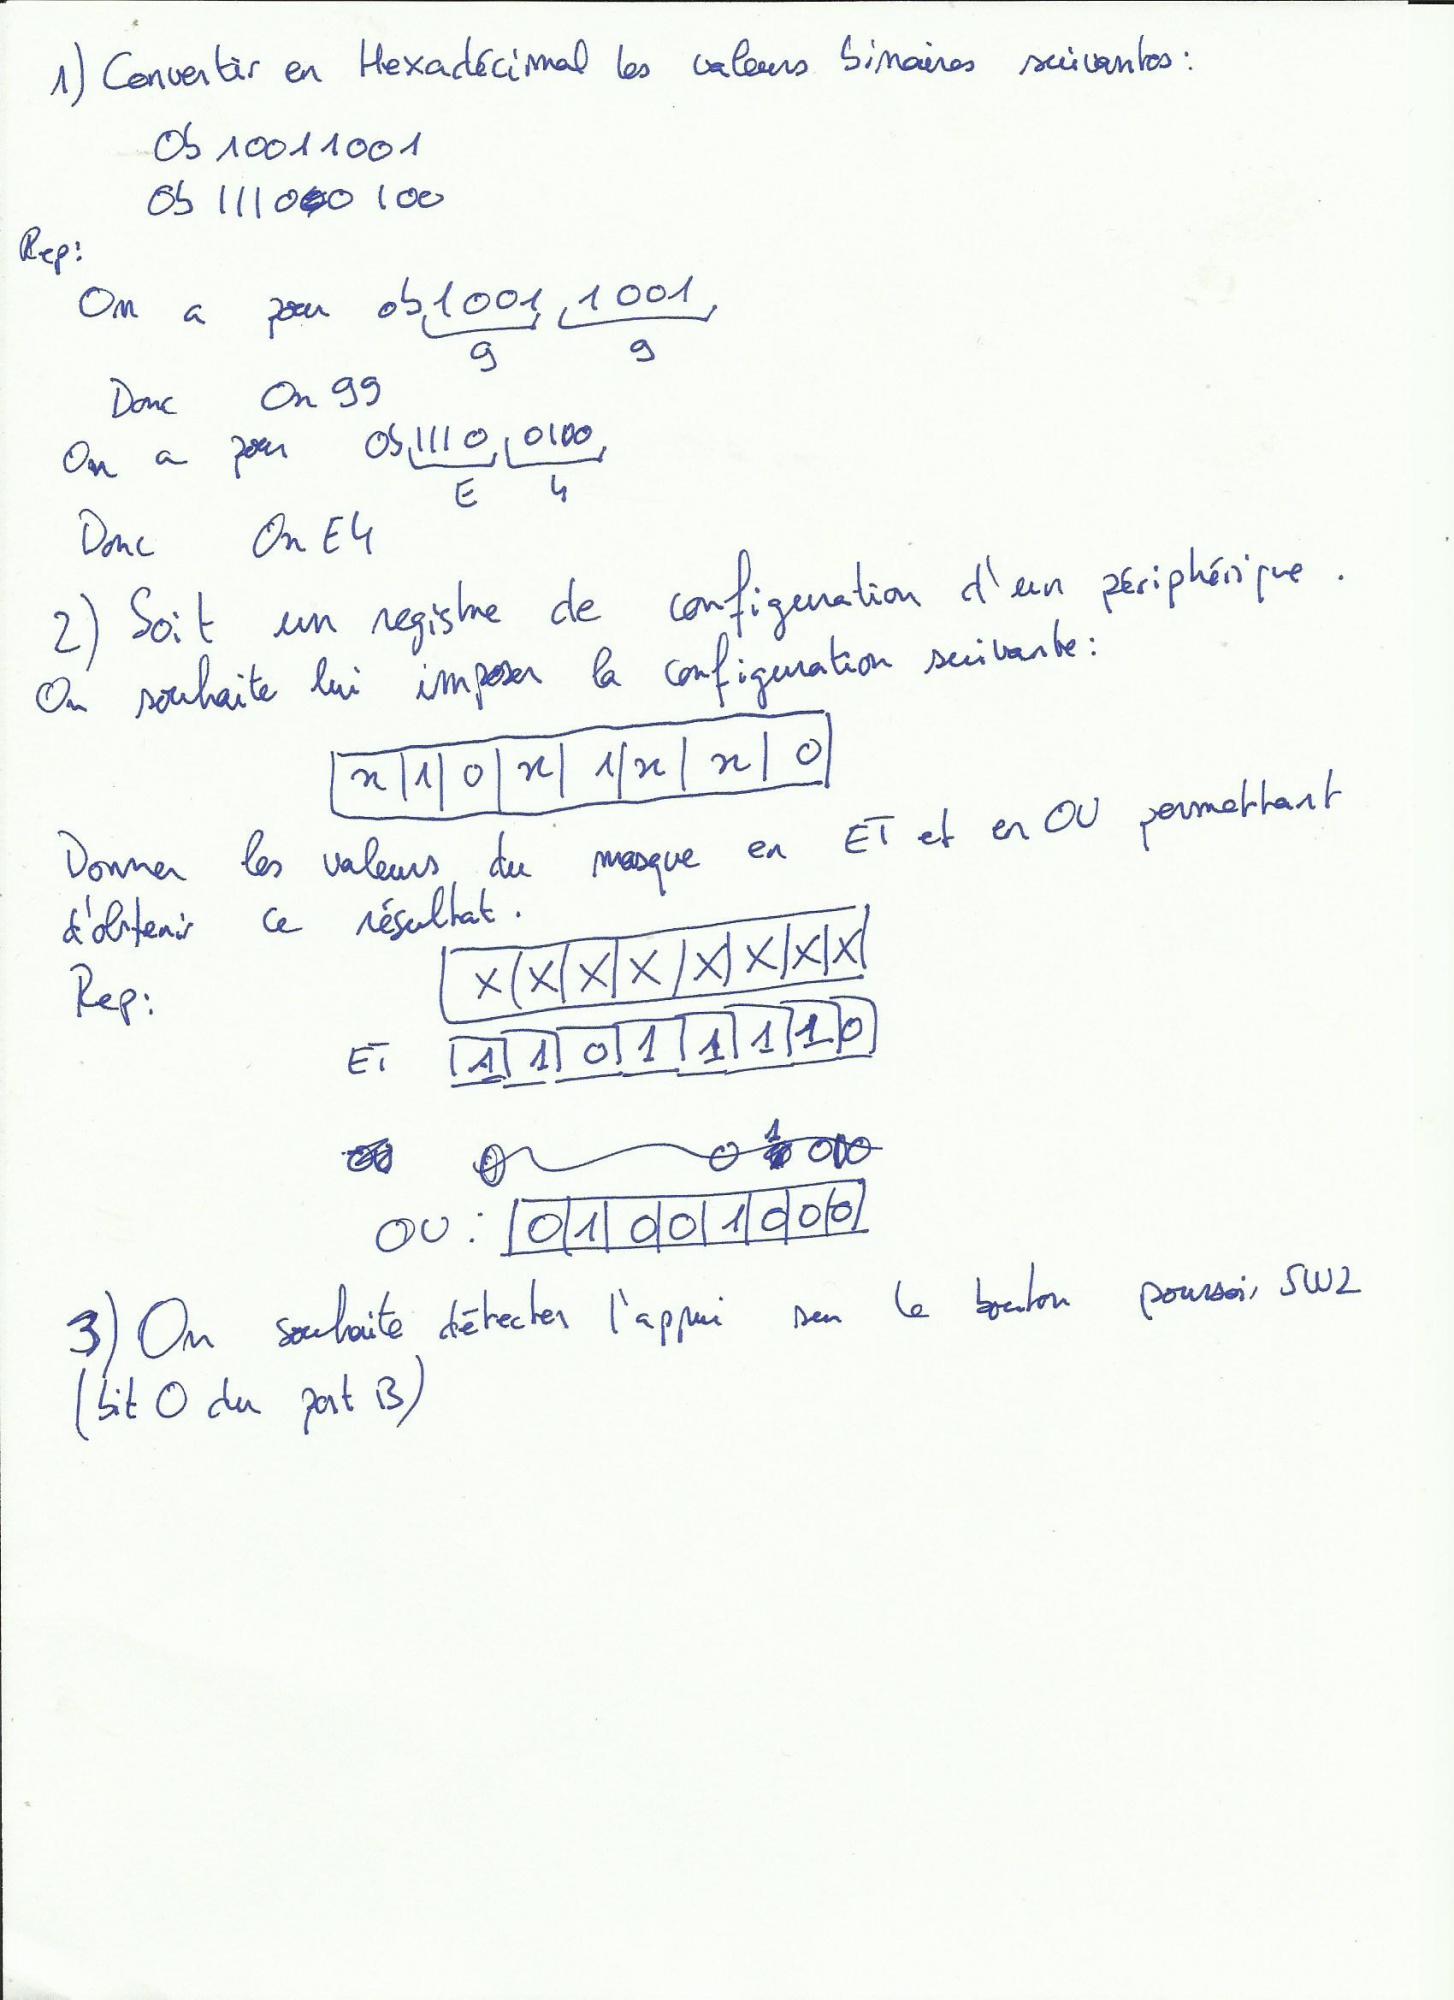 1) Convertir en Hexadécimal les valeurs binaires suivantes:
0b 10011001
0b 11100100
Rep:
On a pour 0b 1001 1001
9 9
Donc 0x 99
On a pour 0b 1110 0100
E 4
Donc 0x E4
2) Soit un registre de configuration d'un périphérique.
On souhaite lui imposer la configuration suivante:
x | 1 | 0 | x | 1 | x | x | 0
Donner les valeurs du masque en ET et en OU permettant
d'obtenir ce résultat.
Rep: X X X X X X X X
ET 1 1 0 1 1 1 1 0
OU: 0 1 0 0 1 0 0 0
3) On souhaite détecter l'appui sur le bouton poussoir SW2
(bit 0 du port B)